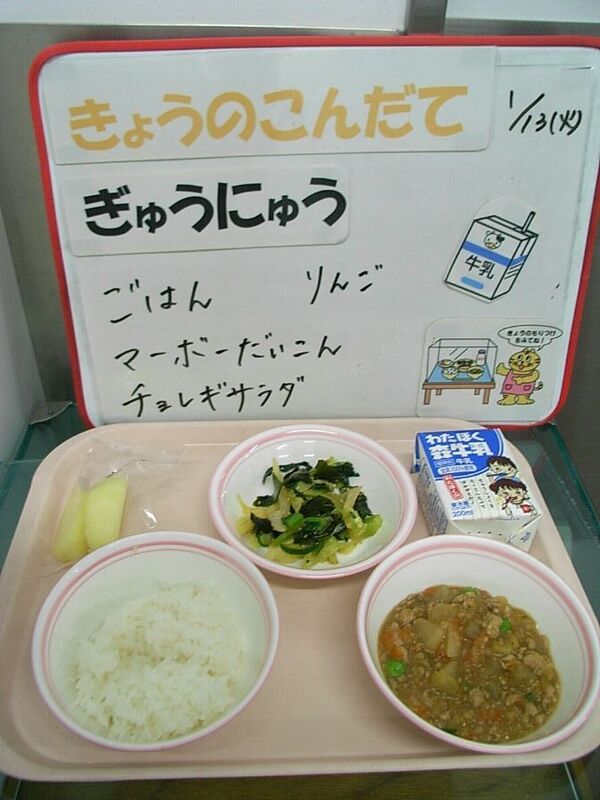 きょうのこんだて
1/13(火)
ぎゅうにゅう
ごはん りんご
マーボーだいこん
チョレギサラダ
牛乳
きょうのもりつけ
をみてね!
わたぼく
牛乳
200ml